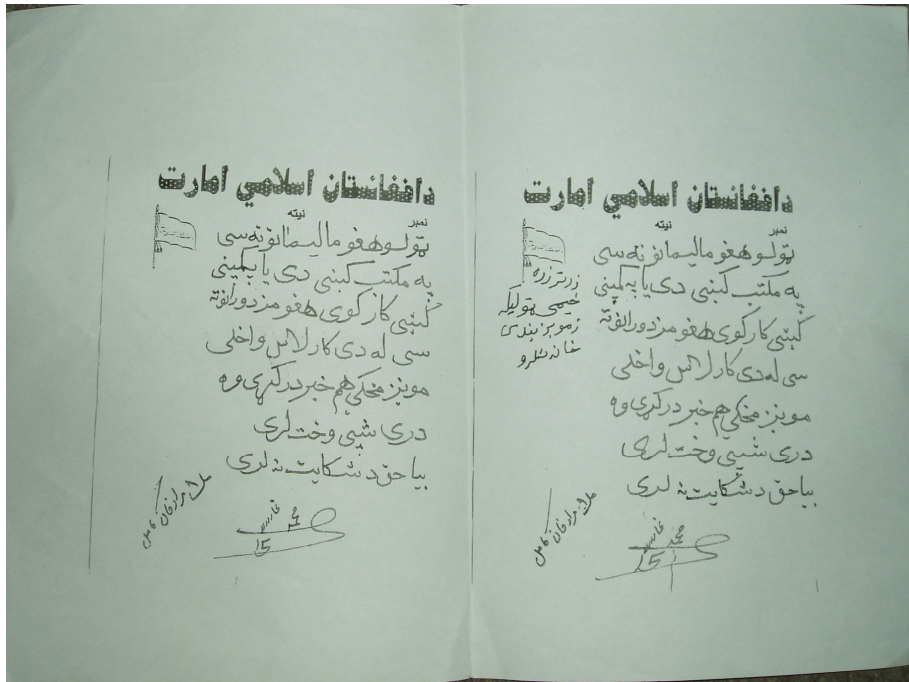 دافغانستان اسلامي امارت
نمبر نېټه
ټولو هغو مالیمانو ته سی
په مکتب کښی دی یا په کمپنی
کښی کار کوی هغو مزدورانو ته
سی له دی کار لاس واخلی
موږ مخکی هم خبر درکړی وه
دری شپی وخت لری
بیا حق د شکایت نه لری
ژر تر ژره
خیمی ټولیګه
زموږ بندی
محمد
15
دافغانستان اسلامي امارت
نمبر نېټه
ټولو هغو مالیمانو ته سی
په مکتب کښی دی یا په کمپنی
کښی کار کوی هغو مزدورانو ته
سی له دی کار لاس واخلی
موږ مخکی هم خبر درکړی وه
دری شپی وخت لری
بیا حق د شکایت نه لری
15